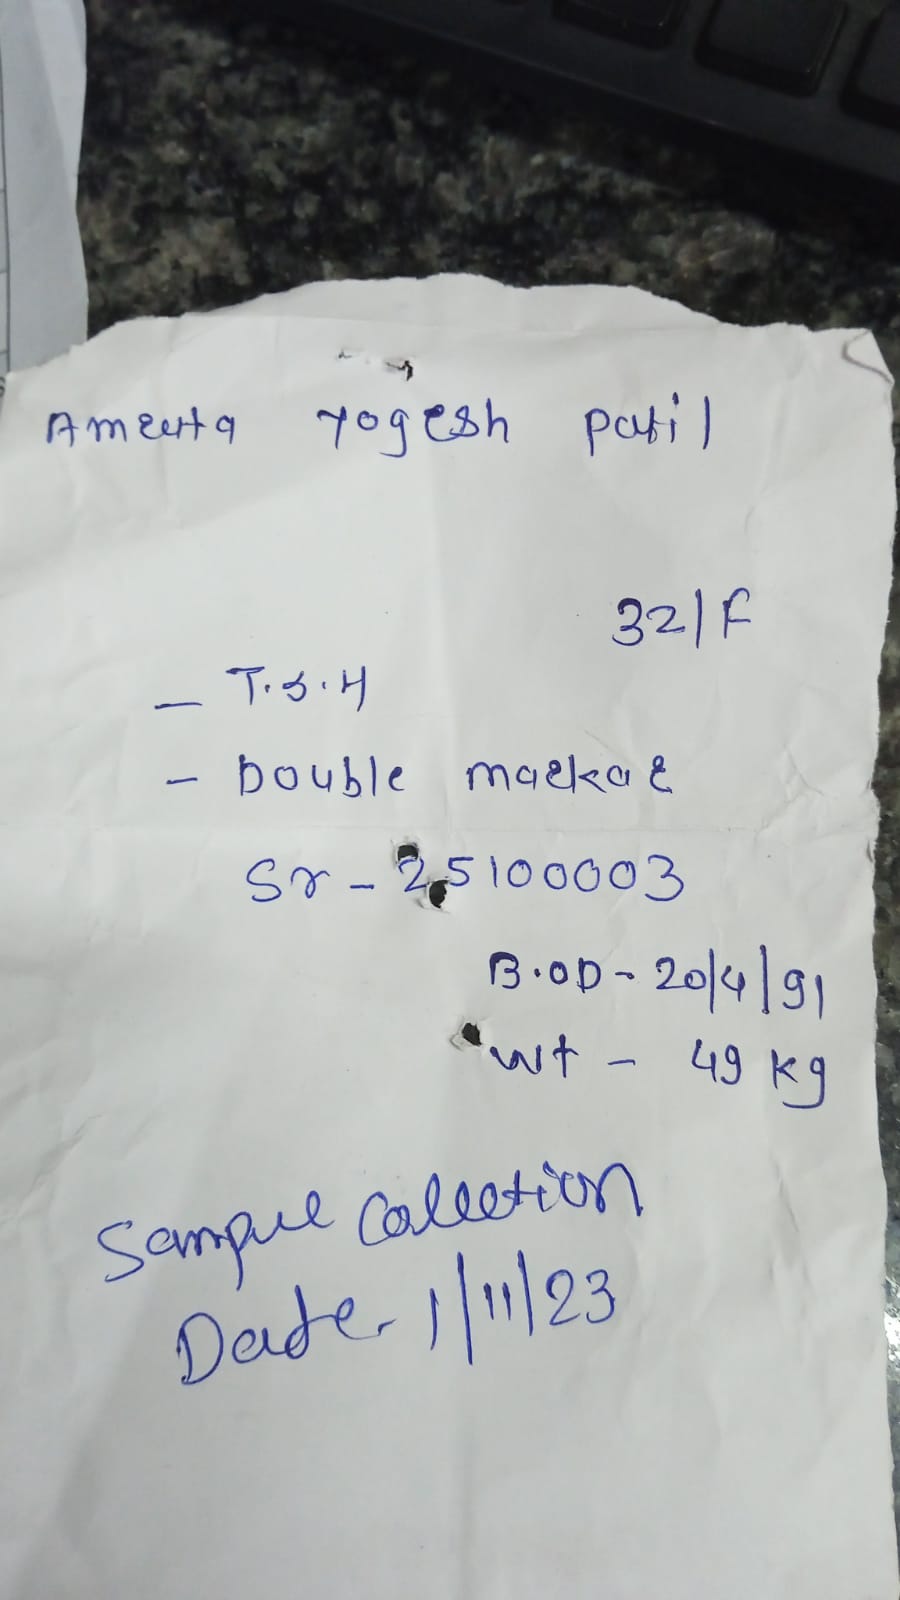 Amruta Yogesh Patil
32/F
- T.S.H
- Double markar
Sr - 25100003
B.OD - 20/4/91
Wt - 49 kg
Sample Collection
Date 1/11/23